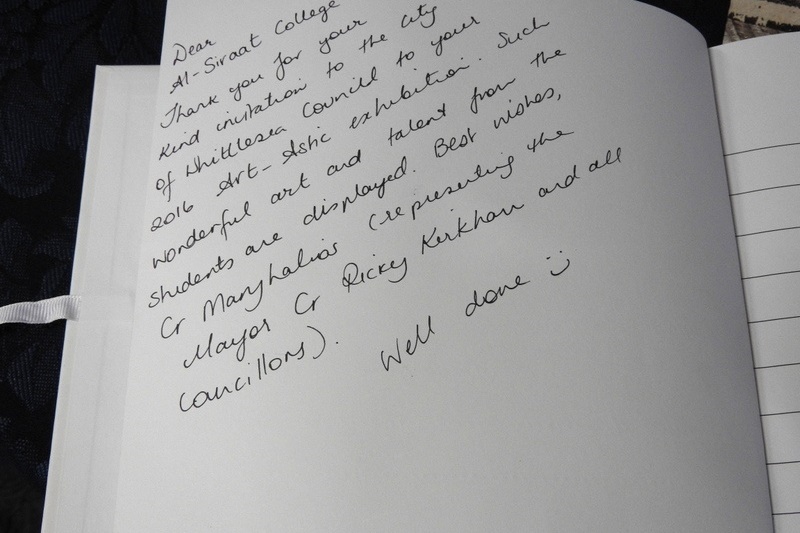 Dear
Al-Siraat College
Thank you for your
kind invitation to the City
of Whittlesea Council to your
2016 Art-Astic exhibition. Such
wonderful art and talent from the
students are displayed. Best wishes,
Cr Mary Lalios (representing the
Mayor Cr Ricky Kirkham and all
councillors).
Well done :)